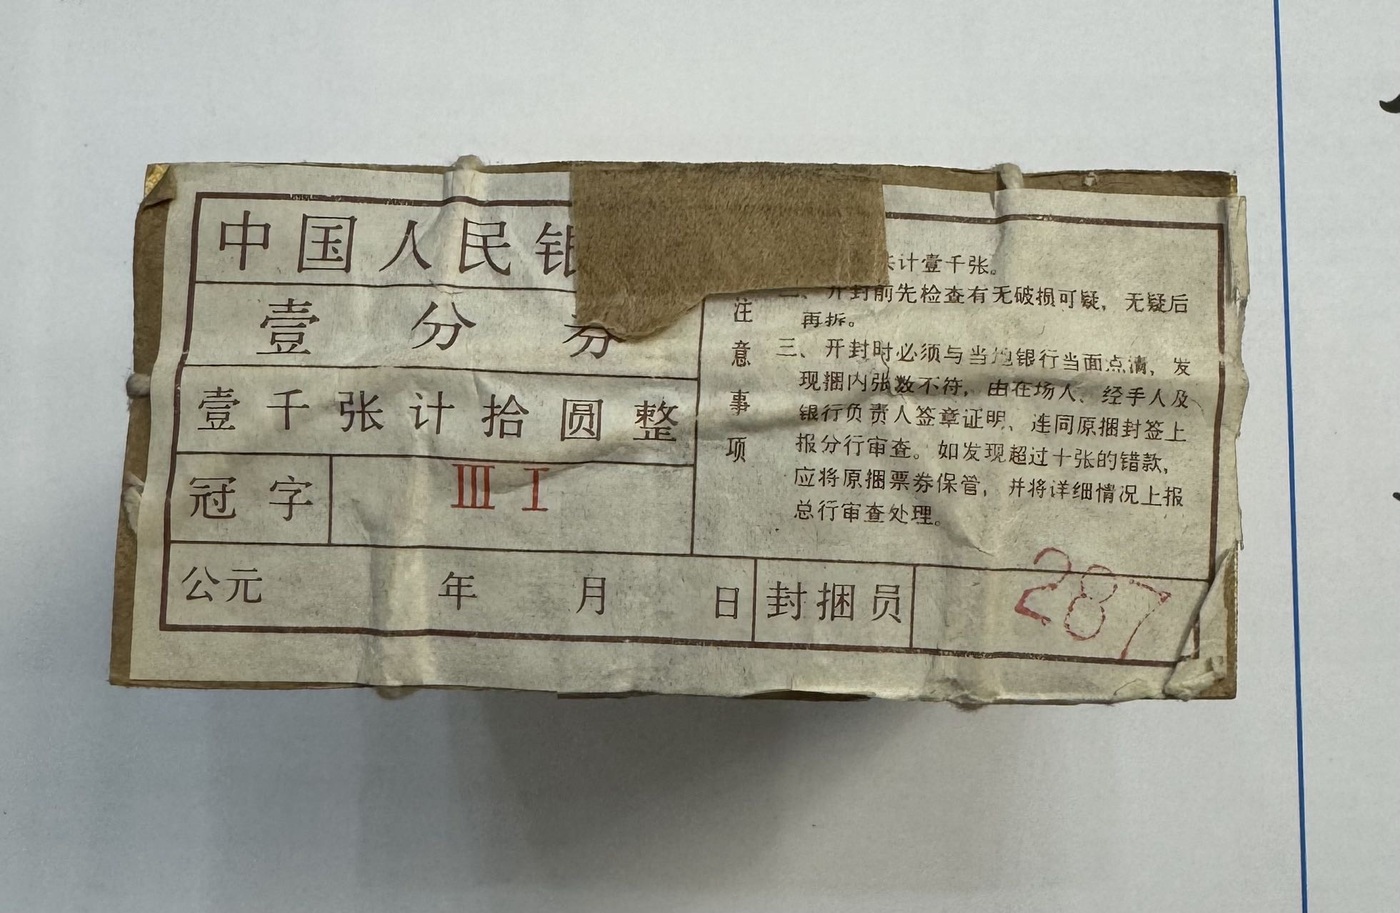 中国人民银
壹分券
壹千张计拾圆整
冠字 III I
公元 年 月 日 封捆员 287
注意事项
计壹千张。
二、开封前先检查有无破损可疑，无疑后
再拆。
三、开封时必须与当地银行当面点清，发
现捆内张数不符，由在场人、经手人及
银行负责人签章证明，连同原捆封签上
报分行审查。如发现超过十张的错款，
应将原捆票券保管，并将详细情况上报
总行审查处理。